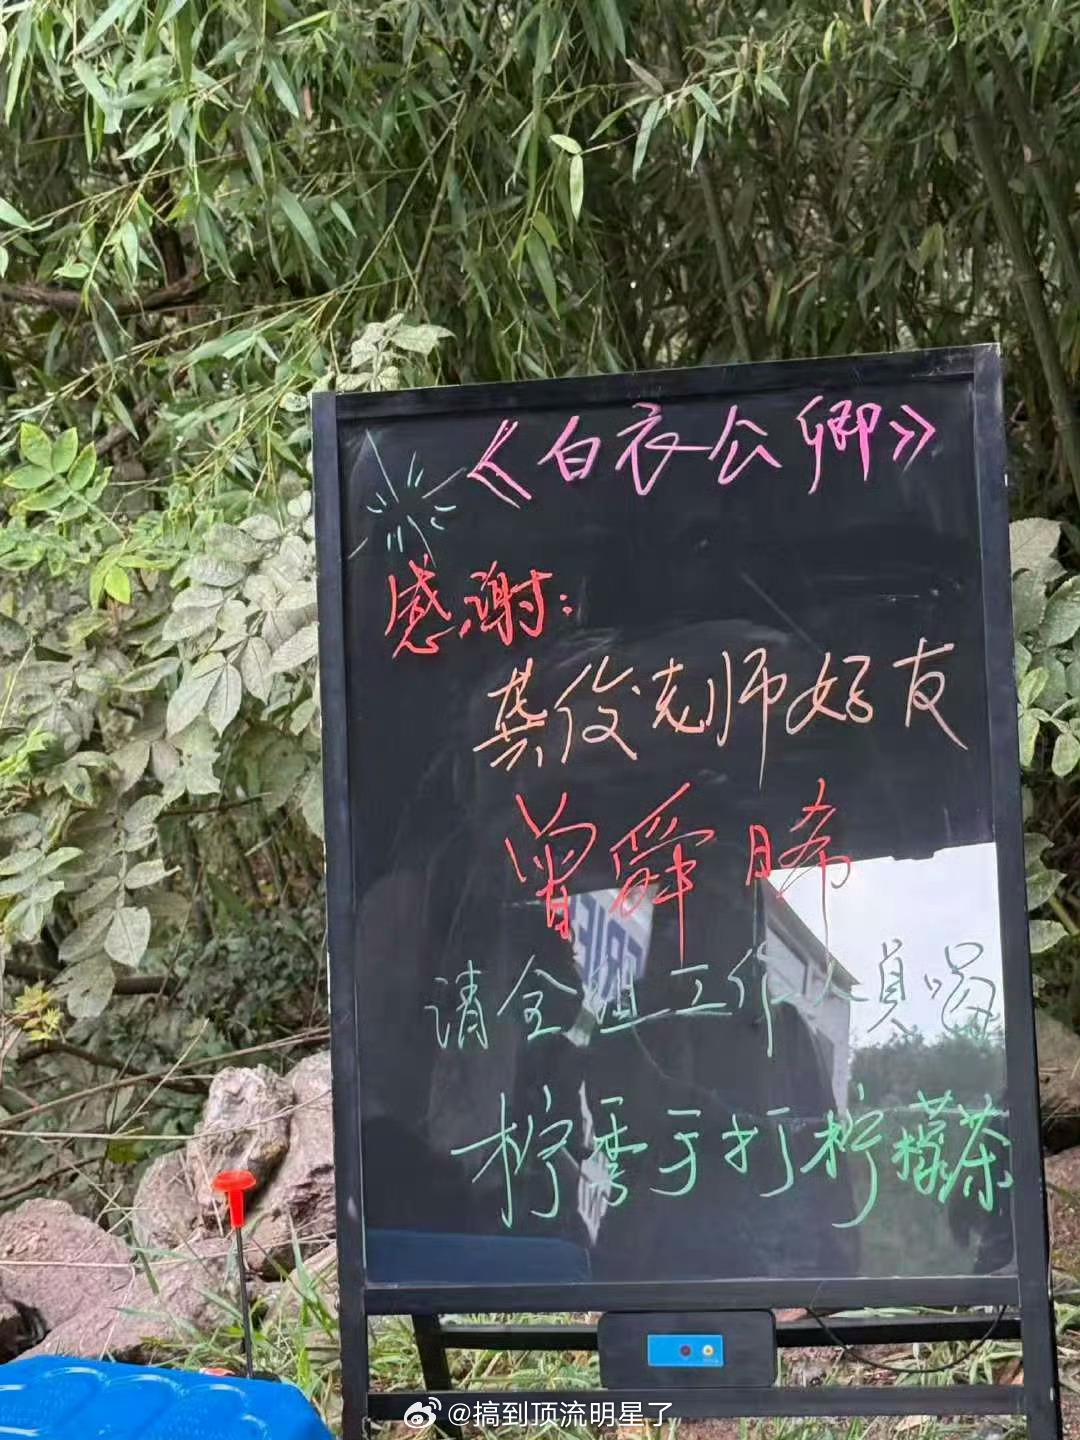 《白衣公卿》
感谢：
龚俊老师好友
曾舜晞
请全组工作人员喝
柠季手打柠檬茶
@搞到顶流明星了